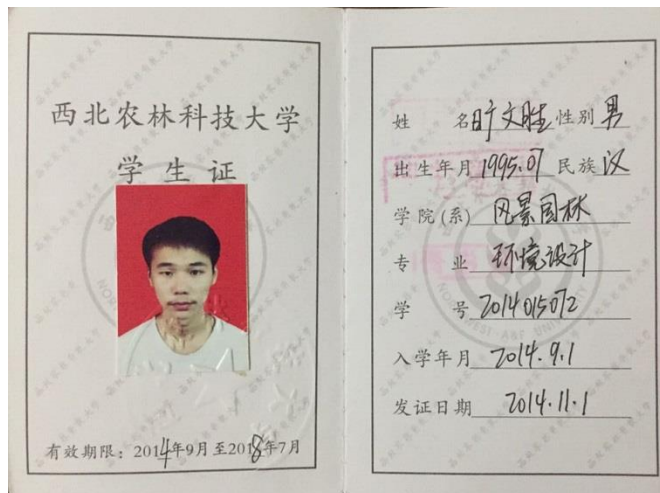 西北农林科技大学
学生证
有效期限：2014年9月至2018年7月
姓名旷文胜性别男
出生年月1995.07民族汉
学院(系)风景园林
专业环境设计
学号2014015072
入学年月2014.9.1
发证日期2014.11.1
NORTHWEST A&F UNIVERSITY